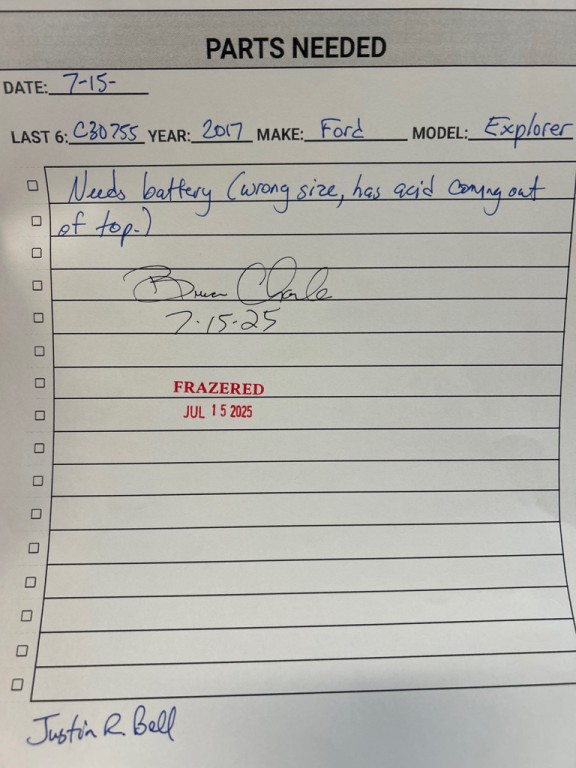 PARTS NEEDED
DATE: 7-15-
LAST 6: C30755 YEAR: 2017 MAKE: Ford MODEL: Explorer
Needs battery (wrong size, has acid coming out
of top.)
7-15-25
FRAZERED
JUL 15 2025
Justin R. Bell